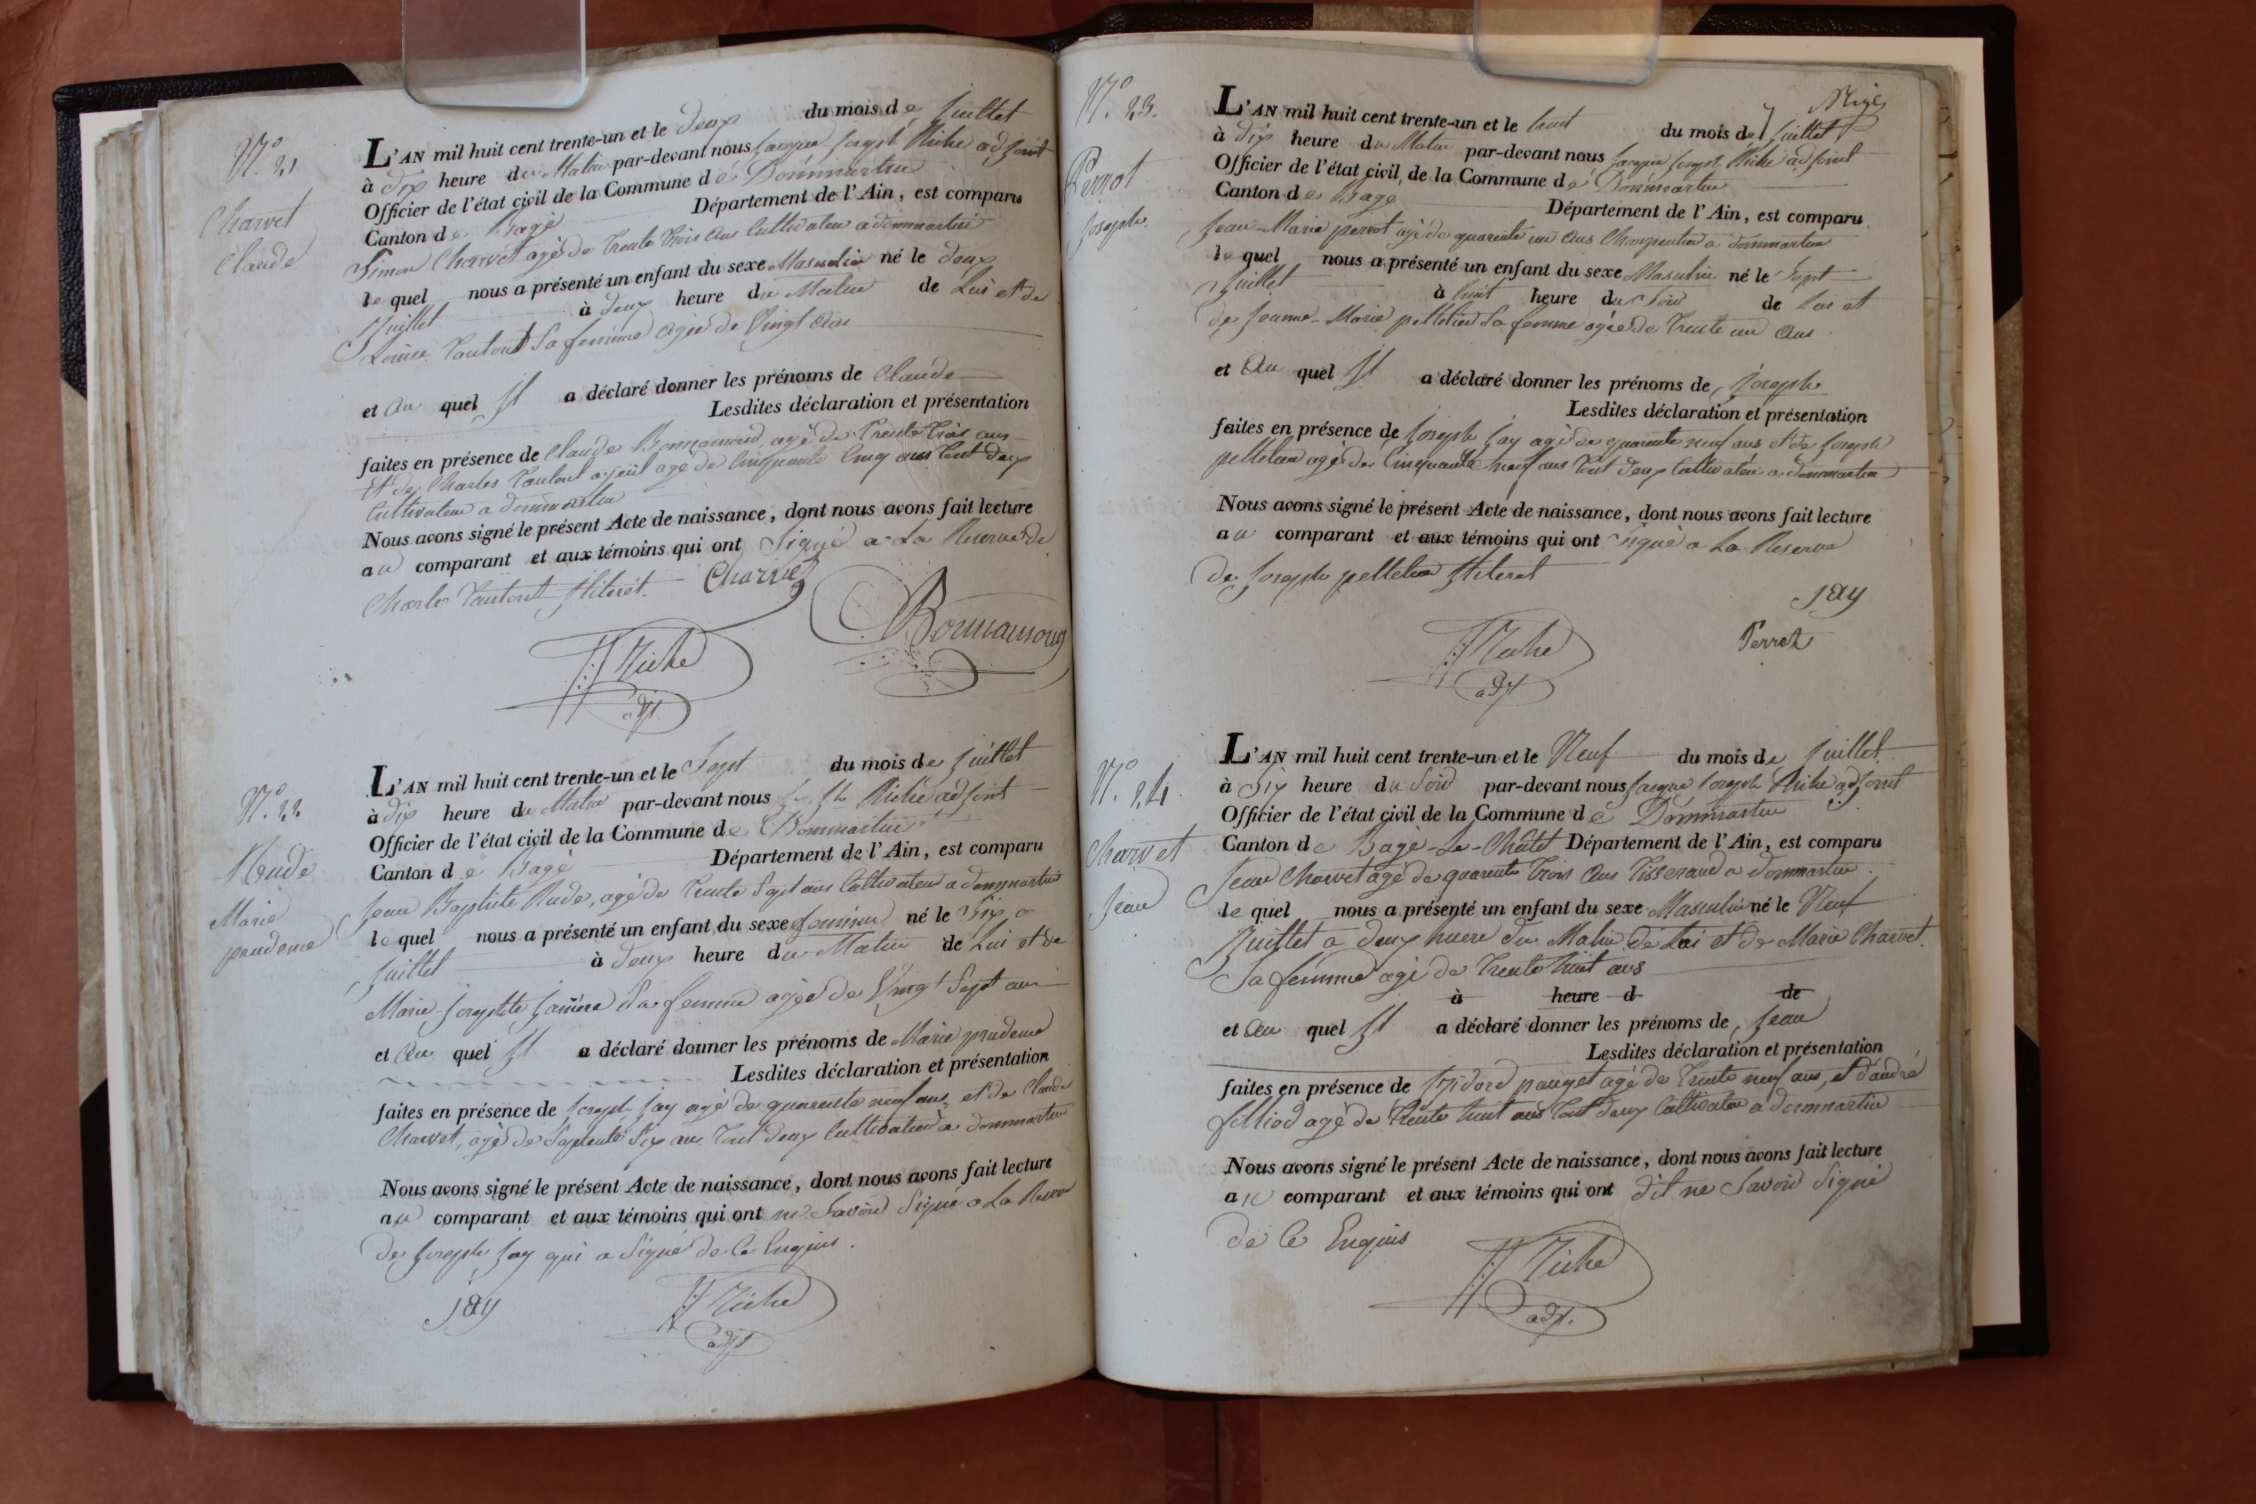 N.º 21
Charvet
Claude
L'AN mil huit cent trente-un et le deux du mois de juillet
à dix heure du Matin par-devant nous jacque joseph Riche adjoint
Officier de l'état civil de la Commune de Dommartin
Canton de Bagé Département de l'Ain, est comparu
Simon Charvet agé de trente trois ans Cultivateur a dommartin
le quel nous a présenté un enfant du sexe Masculin né le deux
Juillet à deux heure du Matin de Lui et de
Louise sa femme agée de Vingt
et Au quel Il a déclaré donner les prénoms de Claude
Lesdites déclaration et présentation
faites en présence de Claude Bonnamour, agé de trente trois ans
et de Charles ajeul agé de Cinquante Cinq ans tout deux
Cultivateur a dommartin
Nous avons signé le présent Acte de naissance, dont nous avons fait lecture
au comparant et aux témoins qui ont Signé a La Reserve de
Charle Iliteret.
Charvet
Bonnamour
JJ Riche
adjt
N.º 22
Rude
Marie
prudence
L'AN mil huit cent trente-un et le Sept du mois de juillet
à dix heure du Matin par-devant nous Riche adjoint
Officier de l'état civil de la Commune de Dommartin
Canton de Bagé Département de l'Ain, est comparu
jean Baptiste Rude, agé de trente Sept ans Cultivateur a dommartin
le quel nous a présenté un enfant du sexe feminin né le Six
juillet à deux heure du Matin de Lui et de
Marie josephte Sa femme agée de Vingt Sept ans
et Au quel Il a déclaré donner les prénoms de Marie prudence
Lesdites déclaration et présentation
faites en présence de joseph jay agé de quarente neuf ans, et de Claude
Charvet, agé de Septente Six ans tout deux Cultivateur a dommartin
Nous avons signé le présent Acte de naissance, dont nous avons fait lecture
au comparant et aux témoins qui ont ne Savoir Signé a La Reserve
de joseph jay qui a Signé de Ce Enquis.
jay
JJ Riche
adjt
N.º 23.
Perrot
joseph.
L'AN mil huit cent trente-un et le huit du mois de juillet
à dix heure du Matin par-devant nous jacque joseph Riche adjoint
Officier de l'état civil de la Commune de Dommartin
Canton de Bagé Département de l'Ain, est comparu
jean-Marie perrot agé de quarente un ans Charpentier a dommartin
le quel nous a présenté un enfant du sexe Masculin né le Sept
juillet à huit heure du Soir de Lui et
de jeanne-Marie pelletier Sa femme agée de trente un Ans
et Au quel Il a déclaré donner les prénoms de joseph
Lesdites déclaration et présentation
faites en présence de joseph jay agé de quarente neuf ans et de joseph
pelletier agé de Cinquante neuf ans tout deux Cultivateur a dommartin
Nous avons signé le présent Acte de naissance, dont nous avons fait lecture
au comparant et aux témoins qui ont signé a La Reserve
de joseph pelletier Iliteret
jay
Perrot
JJ Riche
adjt
N.º 24.
Charvet
jean
L'AN mil huit cent trente-un et le Neuf du mois de juillet
à Six heure du Soir par-devant nous jacque joseph Riche adjoint
Officier de l'état civil de la Commune de Dommartin
Canton de Bagé-Le-Châtel Département de l'Ain, est comparu
Jean Charvet agé de quarente trois ans tisserand a dommartin
le quel nous a présenté un enfant du sexe Masculin né le Neuf
Juillet a deux heure du Matin de Lui et de Marie Charvet
Sa femme agé de trente huit ans
à heure d de
et Au quel Il a déclaré donner les prénoms de jean
Lesdites déclaration et présentation
faites en présence de pauget agé de trente neuf ans, et d'andré
filliod agé de trente huit ans tout deux Cultivateur a dommartin
Nous avons signé le présent Acte de naissance, dont nous avons fait lecture
au comparant et aux témoins qui ont dit ne Savoir Signé
de Ce Enquis
JJ Riche
adjt.